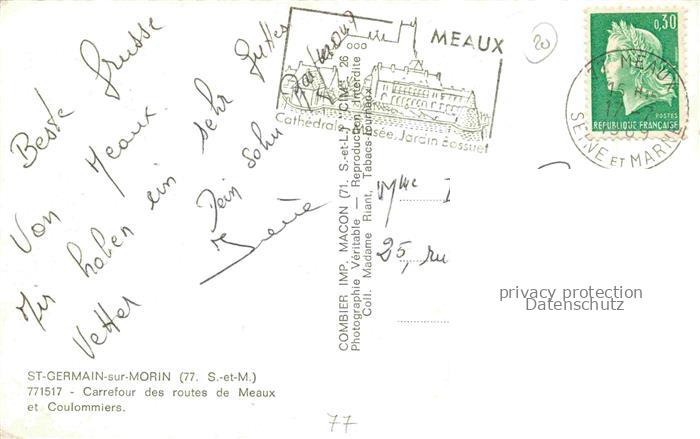 Beste Grüsse
Von Meaux.
Wir haben ein sehr guttes
Vetter
Dein sohn
MEAUX
Cathédrale, Musée, Jardin Bossuet
0,30
POSTES
RÉPUBLIQUE FRANÇAISE
MEAUX
17
1969
SEINE ET MARNE
20
Mme
25, ru
COMBIER IMP. MACON (71. S.-et-L.) "CIM"
Photographie Véritable — Reproduction Interdite
Coll. Madame Riant, Tabacs-Journaux
26 000
privacy protection
Datenschutz
ST-GERMAIN-sur-MORIN (77. S.-et-M.)
771517 - Carrefour des routes de Meaux
et Coulommiers.
77